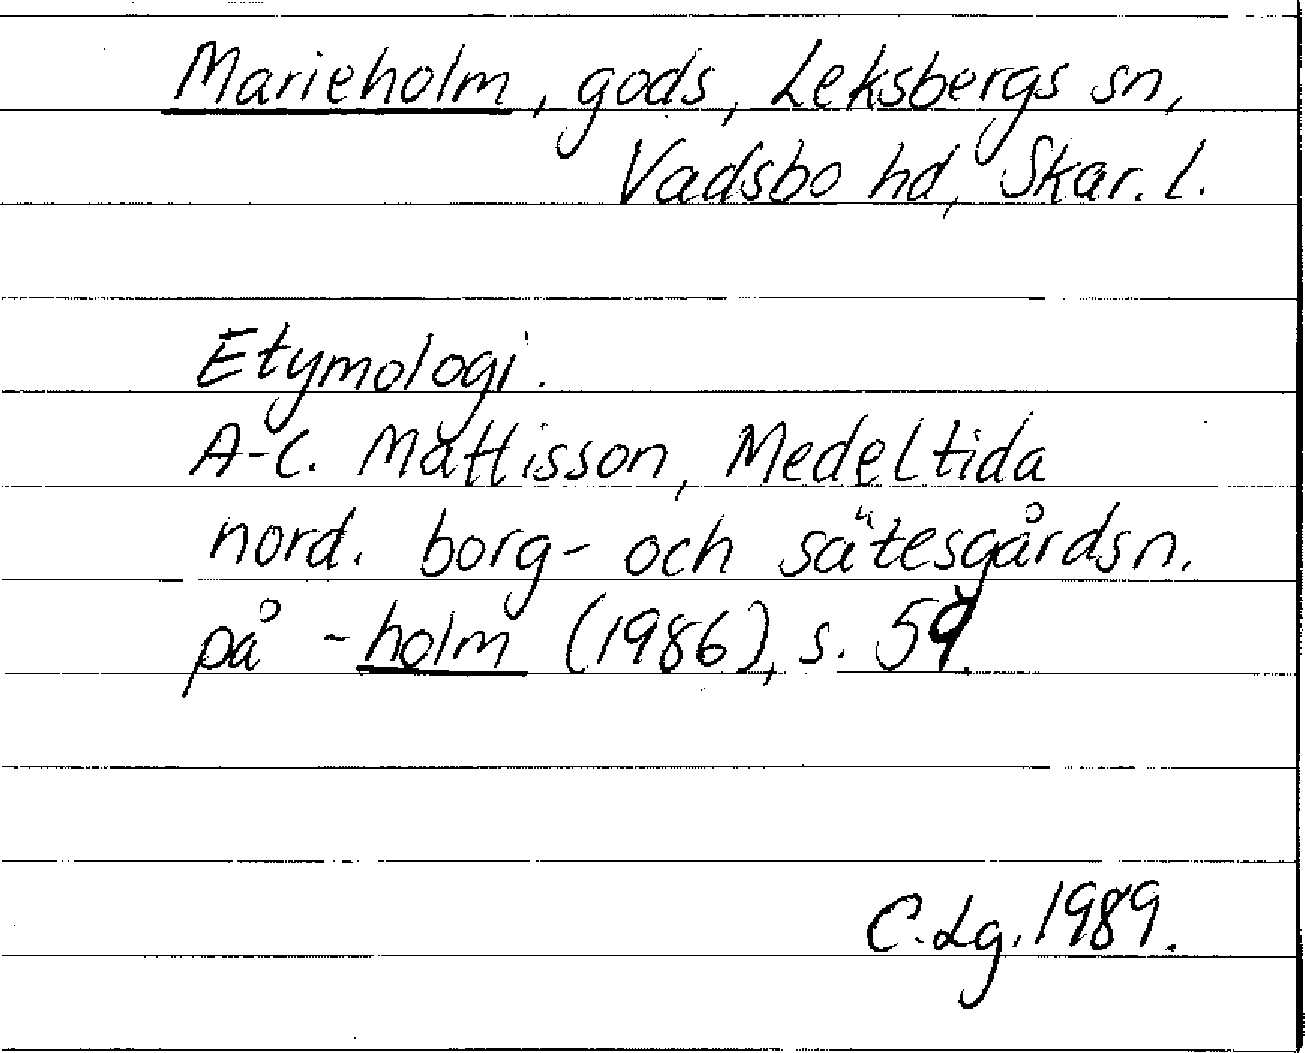 Marieholm, gods, Leksbergs sn,
Vadsbo hd, Skar. l.
Etymologi.
A-C. Mattisson, Medeltida
nord. borg- och sätesgårdsn.
på -holm (1986), s. 59.
C.Lg. 1989.